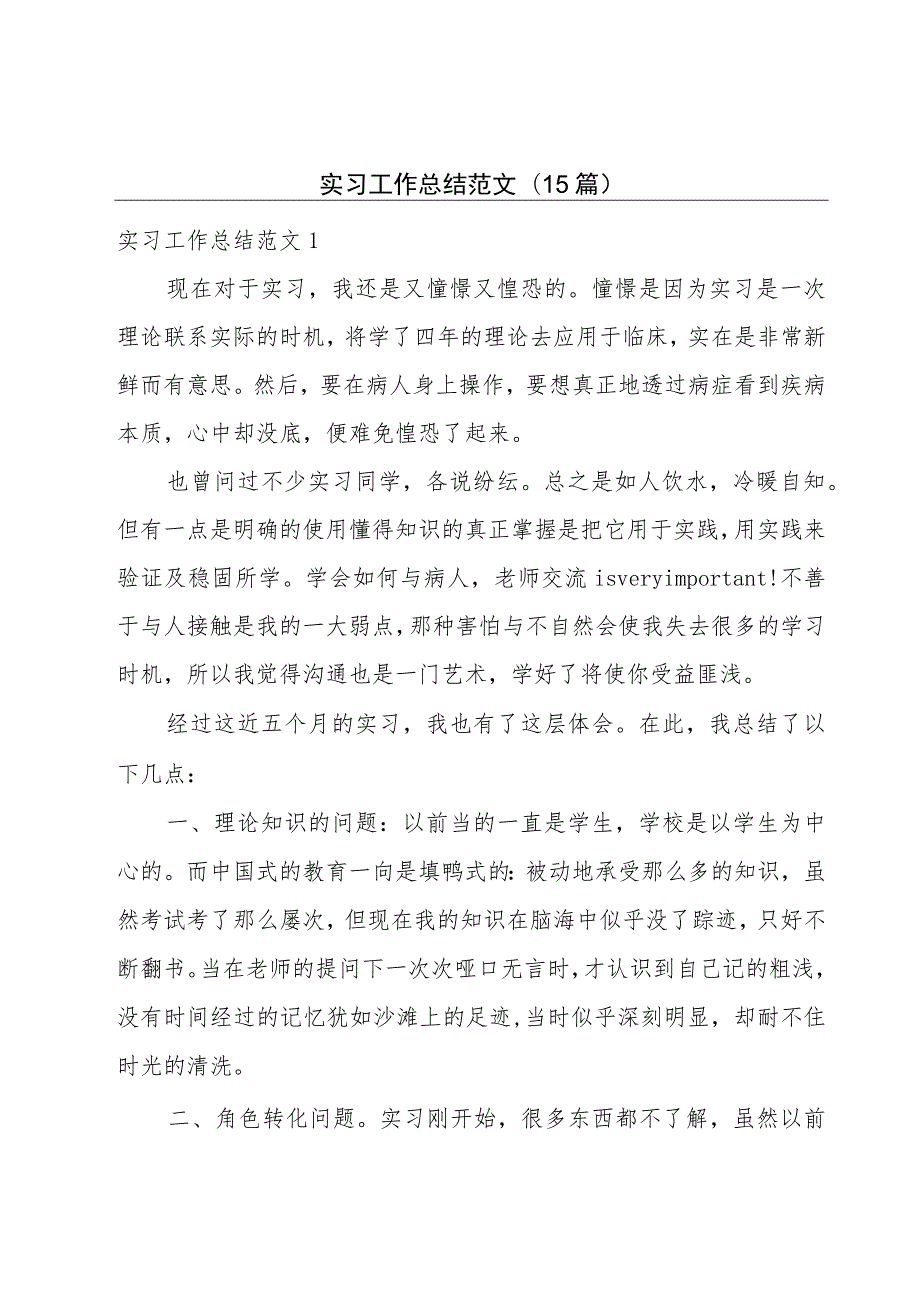 实习工作总结范文（15篇）
实习工作总结范文1
现在对于实习，我还是又憧憬又惶恐的。憧憬是因为实习是一次
理论联系实际的时机，将学了四年的理论去应用于临床，实在是非常新
鲜而有意思。然后，要在病人身上操作，要想真正地透过病症看到疾病
本质，心中却没底，便难免惶恐了起来。
也曾问过不少实习同学，各说纷纭。总之是如人饮水，冷暖自知。
但有一点是明确的使用懂得知识的真正掌握是把它用于实践，用实践来
验证及稳固所学。学会如何与病人，老师交流isveryimportant!不善
于与人接触是我的一大弱点，那种害怕与不自然会使我失去很多的学习
时机，所以我觉得沟通也是一门艺术，学好了将使你受益匪浅。
经过这近五个月的实习，我也有了这层体会。在此，我总结了以
下几点：
一、理论知识的问题：以前当的一直是学生，学校是以学生为中
心的。而中国式的教育一向是填鸭式的：被动地承受那么多的知识，虽
然考试考了那么屡次，但现在我的知识在脑海中似乎没了踪迹，只好不
断翻书。当在老师的提问下一次次哑口无言时，才认识到自己记的粗浅，
没有时间经过的记忆犹如沙滩上的足迹,当时似乎深刻明显，却耐不住
时光的清洗。
二、角色转化问题。实习刚开始，很多东西都不了解，虽然以前